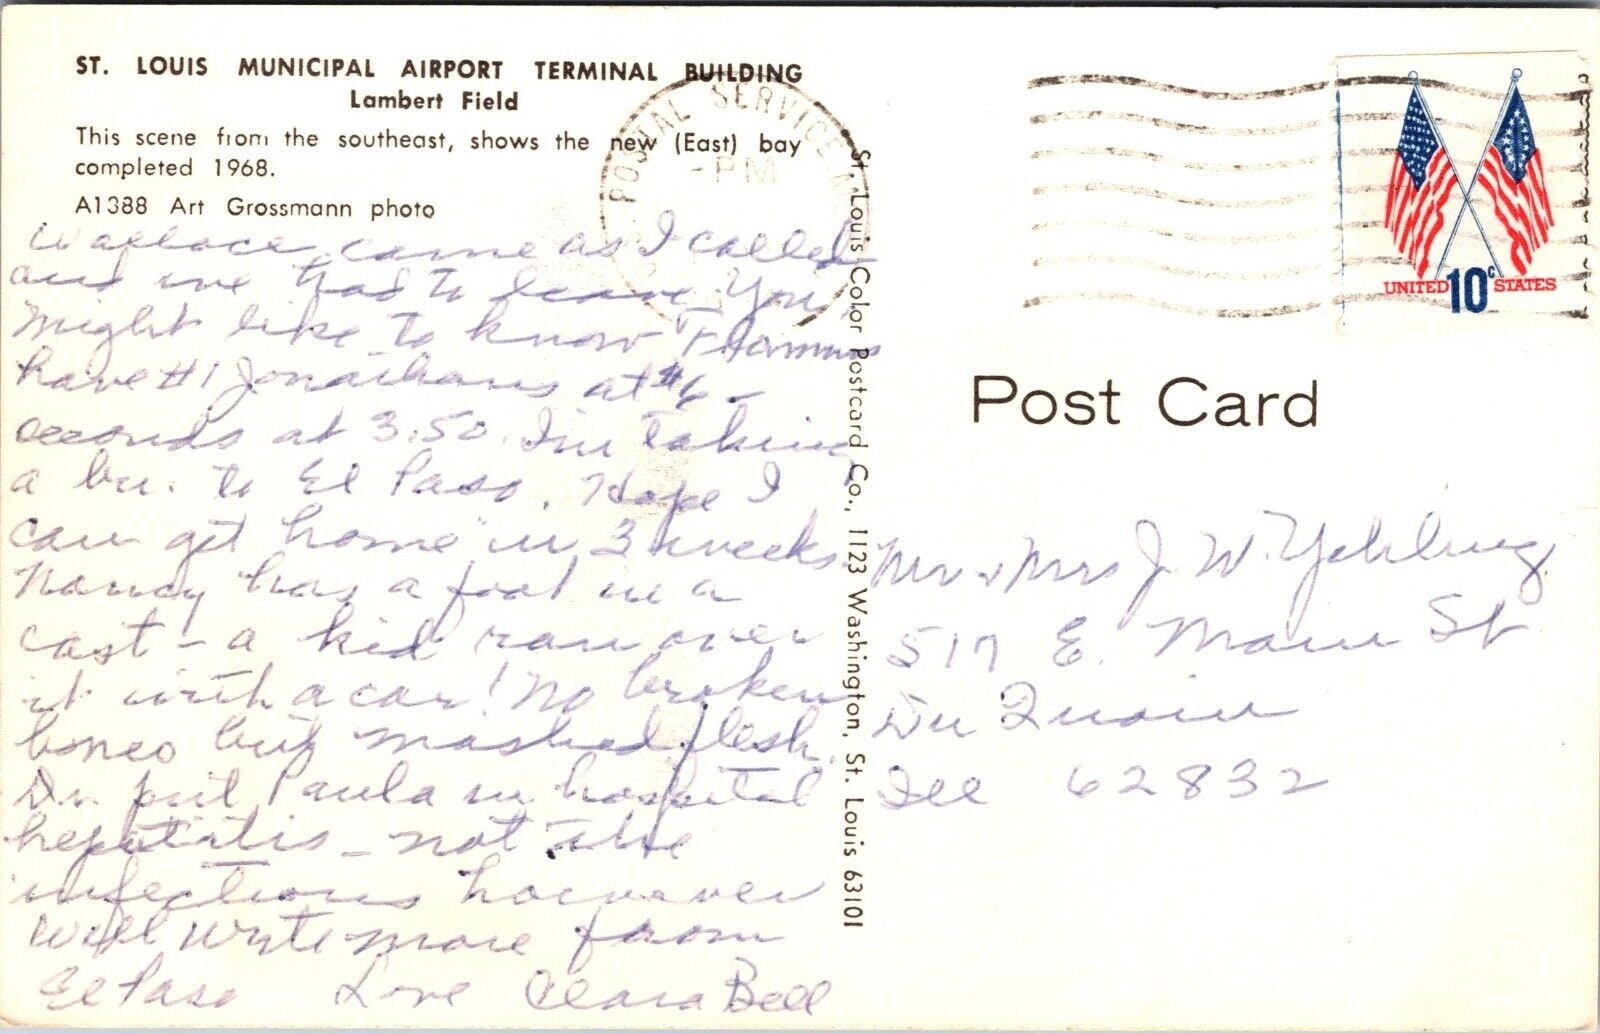 ST. LOUIS MUNICIPAL AIRPORT TERMINAL BUILDING
Lambert Field
This scene from the southeast, shows the new (East) bay
completed 1968.
A1388 Art Grossmann photo
Wallace came as I called
and we had to leave. You
might like to know
have #1 Jonathans at $6 -
seconds at 3.50. I'm taking
a bu. to El Paso. Hope I
can get home in 3 weeks.
Nancy has a foot in a
cast - a kid ran over
it with a car! No broken
bones but mashed flesh.
Dr. put Paula in hospital
hepatitis - not the
infectious however
Will write more from
El Paso Love Clara Bell
St. Louis Color Postcard Co., 1123 Washington, St. Louis 63101
POSTAL SERVICE
PM
UNITED 10c STATES
Post Card
Mr & Mrs J. W. Yehling
517 E. Main St
Du Quoin
Ill 62832